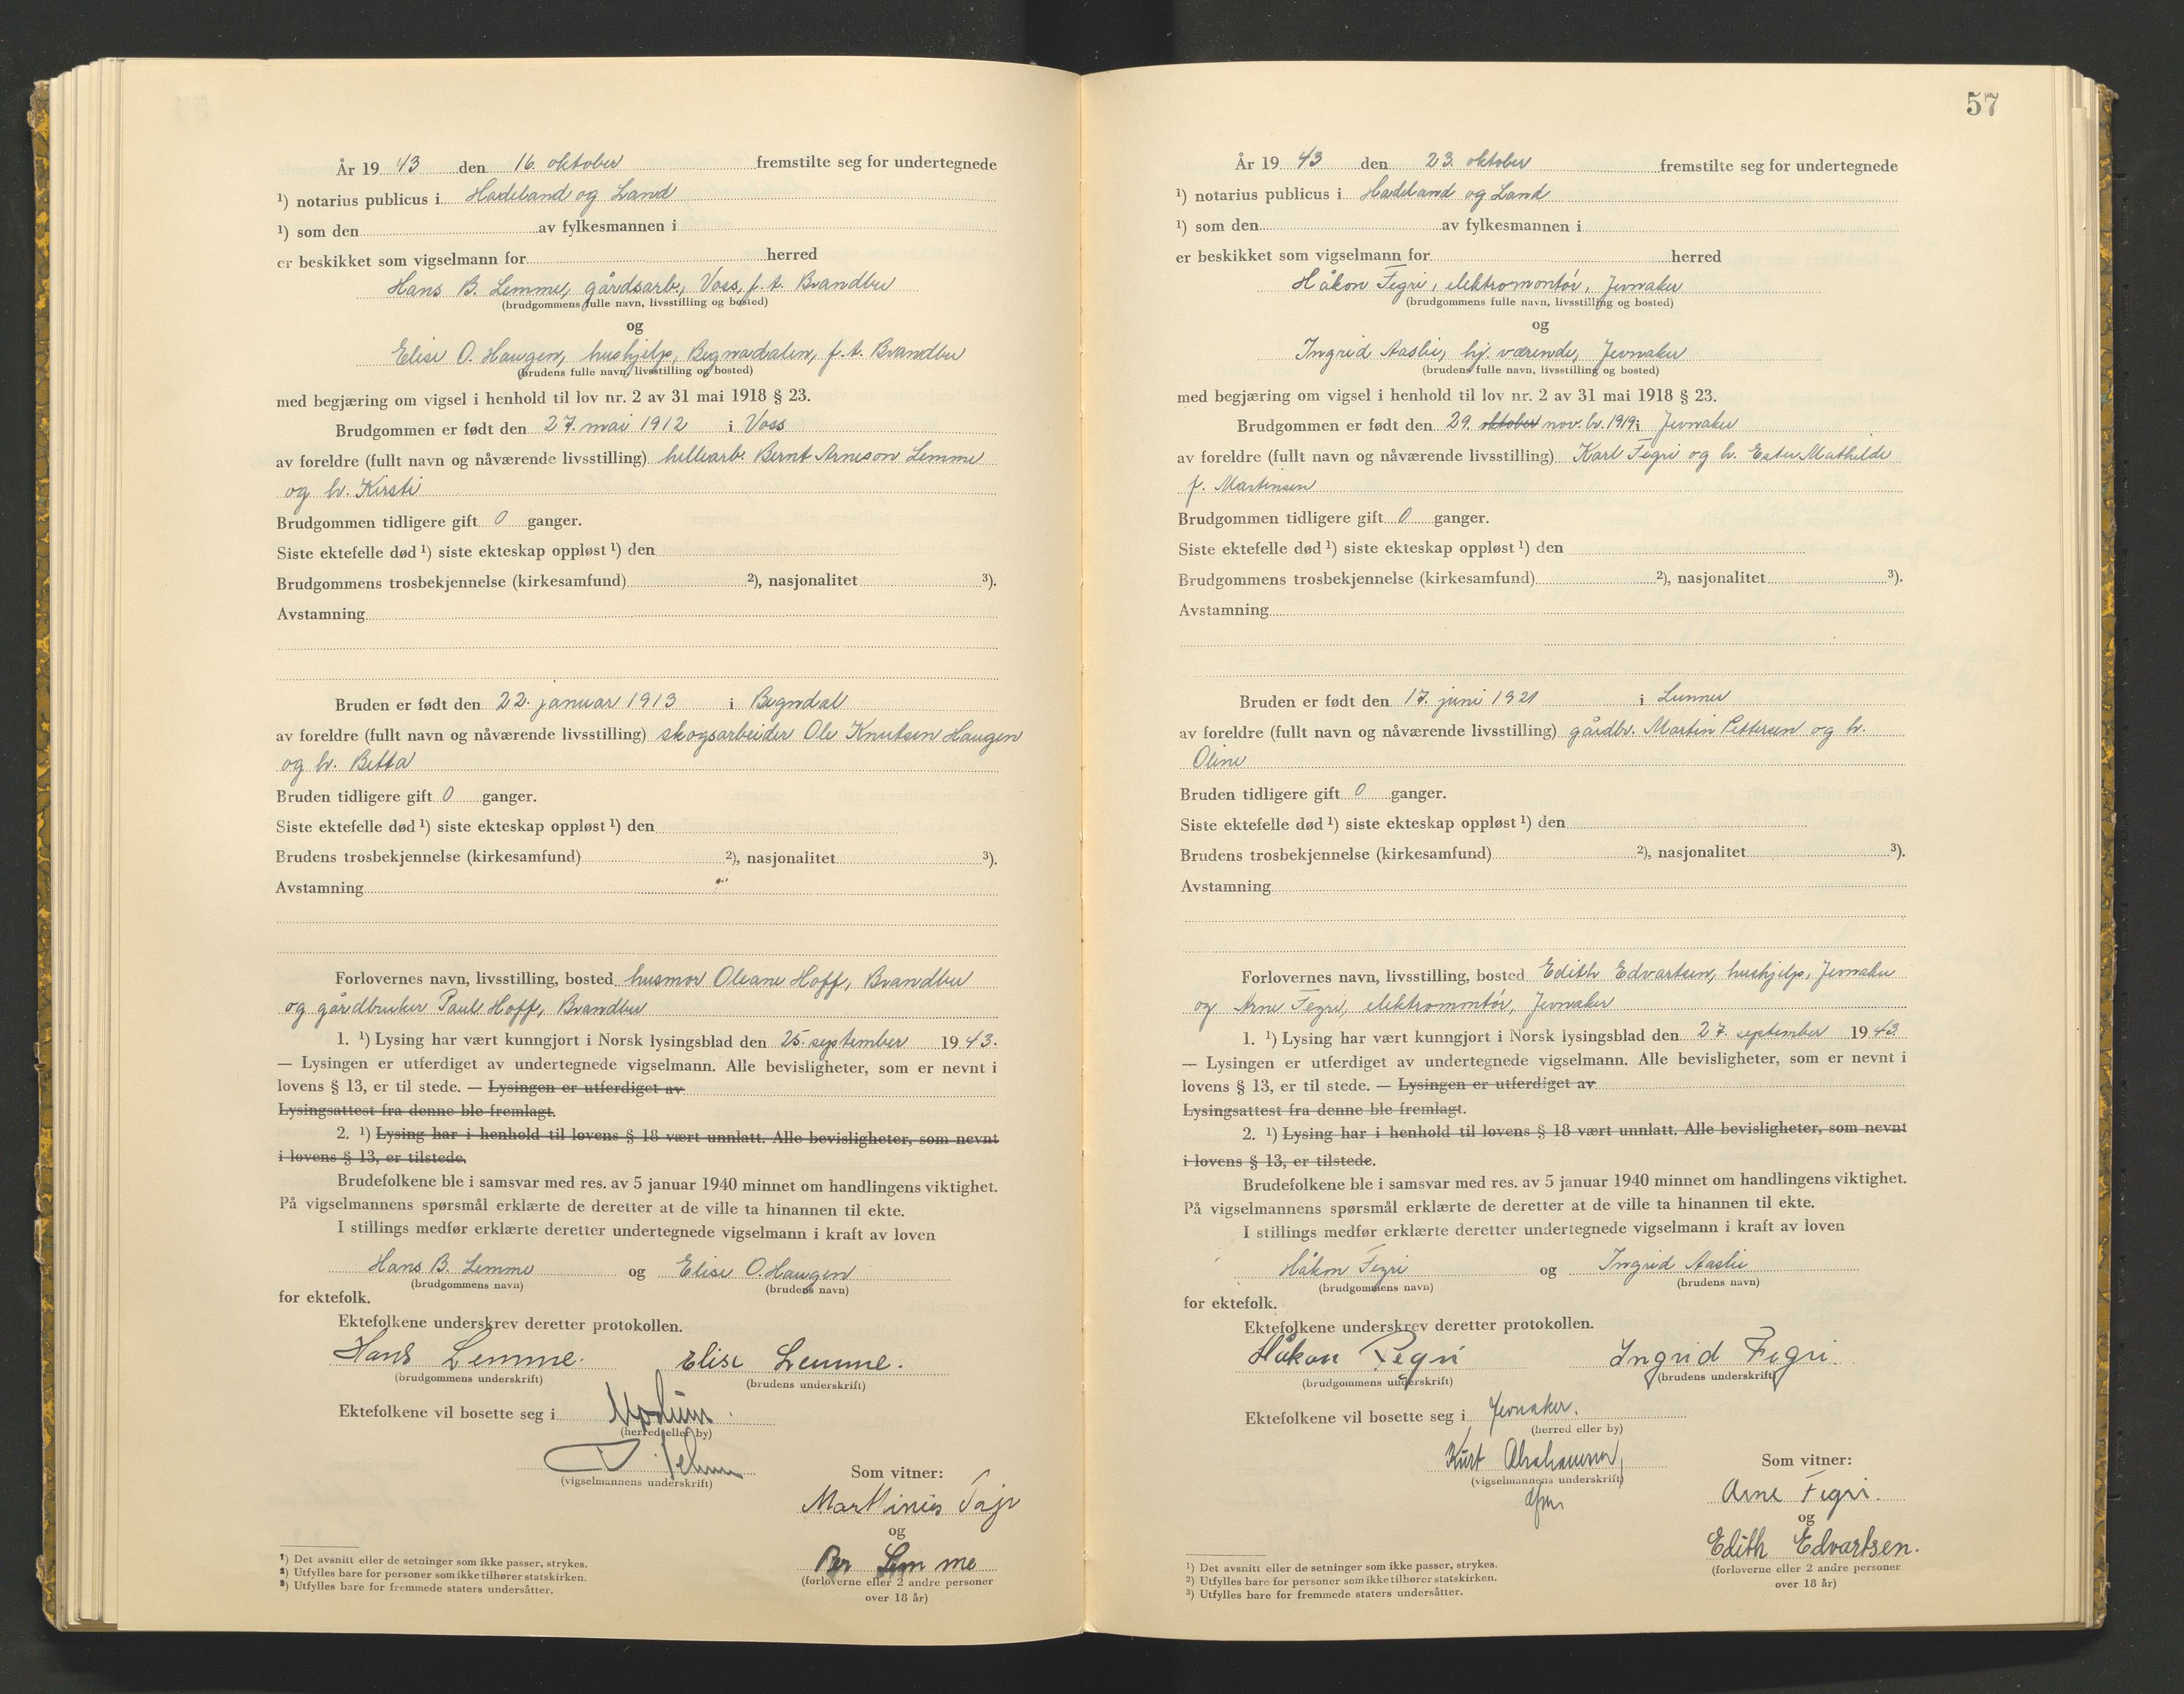 År 19 43 den 16. oktober fremstilte seg for undertegnede
¹) notarius publicus i Hadeland og Land
¹) som den av fylkesmannen i
er beskikket som vigselmann for herred
Hans B. Lemme, gårdsarb., Voss, f.t. Brandbu
(brudgommens fulle navn, livsstilling og bosted)
og
Elise O. Haugen, hushjelp, Begnadalen, f.t. Brandbu
(brudens fulle navn, livsstilling og bosted)
med begjæring om vigsel i henhold til lov nr. 2 av 31 mai 1918 § 23.
Brudgommen er født den 27. mai 1912 i Voss
av foreldre (fullt navn og nåværende livsstilling) hellearb. Bernt Arneson Lemme
og h. Kirsti
Brudgommen tidligere gift 0 ganger.
Siste ektefelle død ¹) siste ekteskap oppløst ¹) den
Brudgommens trosbekjennelse (kirkesamfund) ²), nasjonalitet ³).
Avstamning
Bruden er født den 22. januar 1913 i Begndal
av foreldre (fullt navn og nåværende livsstilling) skogsarbeider Ole Knutsen Haugen
og h. Betta
Bruden tidligere gift 0 ganger.
Siste ektefelle død ¹) siste ekteskap oppløst ¹) den
Brudens trosbekjennelse (kirkesamfund) ²), nasjonalitet ³).
Avstamning
Forlovernes navn, livsstilling, bosted husmor Oleane Hoff, Brandbu
og gårdbruker Paul Hoff, Brandbu
1. ¹) Lysing har vært kunngjort i Norsk lysingsblad den 25. september 19 43.
— Lysingen er utferdiget av undertegnede vigselmann. Alle bevisligheter, som er nevnt i
lovens § 13, er til stede. — Lysingen er utferdiget av
Lysingsattest fra denne ble fremlagt.
2. ¹) Lysing har i henhold til lovens § 18 vært unnlatt. Alle bevisligheter, som nevnt
i lovens § 13, er tilstede.
Brudefolkene ble i samsvar med res. av 5 januar 1940 minnet om handlingens viktighet.
På vigselmannens spørsmål erklærte de deretter at de ville ta hinannen til ekte.
I stillings medfør erklærte deretter undertegnede vigselmann i kraft av loven
Hans B. Lemme og Elise O. Haugen
(brudgommens navn) (brudens navn)
for ektefolk.
Ektefolkene underskrev deretter protokollen.
Hans Lemme. Elise Lemme.
(brudgommens underskrift) (brudens underskrift)
Ektefolkene vil bosette seg i Modum.
(herred eller by)
(vigselmannens underskrift)
Som vitner:
Marthinius
og
Per Lemme
(forloverne eller 2 andre personer
over 18 år)
¹) Det avsnitt eller de setninger som ikke passer, strykes.
²) Utfylles bare for personer som ikke tilhører statskirken.
³) Utfylles bare for fremmede staters undersåtter.
57
År 19 43 den 23. oktober fremstilte seg for undertegnede
¹) notarius publicus i Hadeland og Land
¹) som den av fylkesmannen i
er beskikket som vigselmann for herred
Håkon Fegri, elektromontör, Jevnaker
(brudgommens fulle navn, livsstilling og bosted)
og
Ingrid Aaslie, hj. værende, Jevnaker
(brudens fulle navn, livsstilling og bosted)
med begjæring om vigsel i henhold til lov nr. 2 av 31 mai 1918 § 23.
Brudgommen er født den 29. oktober nov. br. 1919 i Jevnaker
av foreldre (fullt navn og nåværende livsstilling) Karl Fegri og h. Ester Mathilde
f. Martinsen
Brudgommen tidligere gift 0 ganger.
Siste ektefelle død ¹) siste ekteskap oppløst ¹) den
Brudgommens trosbekjennelse (kirkesamfund) ²), nasjonalitet ³).
Avstamning
Bruden er født den 17. juni 1921 i Lunner
av foreldre (fullt navn og nåværende livsstilling) gårdbr. Martin Pettersen og h.
Oline
Bruden tidligere gift 0 ganger.
Siste ektefelle død ¹) siste ekteskap oppløst ¹) den
Brudens trosbekjennelse (kirkesamfund) ²), nasjonalitet ³).
Avstamning
Forlovernes navn, livsstilling, bosted Edith Edvartsen, hushjelp, Jevnaker
og Arne Fegri, elektromontör, Jevnaker
1. ¹) Lysing har vært kunngjort i Norsk lysingsblad den 27. september 19 43
— Lysingen er utferdiget av undertegnede vigselmann. Alle bevisligheter, som er nevnt i
lovens § 13, er til stede. — Lysingen er utferdiget av
Lysingsattest fra denne ble fremlagt.
2. ¹) Lysing har i henhold til lovens § 18 vært unnlatt. Alle bevisligheter, som nevnt
i lovens § 13, er tilstede.
Brudefolkene ble i samsvar med res. av 5 januar 1940 minnet om handlingens viktighet.
På vigselmannens spørsmål erklærte de deretter at de ville ta hinannen til ekte.
I stillings medfør erklærte deretter undertegnede vigselmann i kraft av loven
Håkon Fegri og Ingrid Aaslie
(brudgommens navn) (brudens navn)
for ektefolk.
Ektefolkene underskrev deretter protokollen.
Håkon Fegri Ingrid Fegri.
(brudgommens underskrift) (brudens underskrift)
Ektefolkene vil bosette seg i Jevnaker.
(herred eller by)
Kurt Abrahamsen
(vigselmannens underskrift)
Som vitner:
Arne Fegri.
og
Edith Edvartsen.
(forloverne eller 2 andre personer
over 18 år)
¹) Det avsnitt eller de setninger som ikke passer, strykes.
²) Utfylles bare for personer som ikke tilhører statskirken.
³) Utfylles bare for fremmede staters undersåtter.